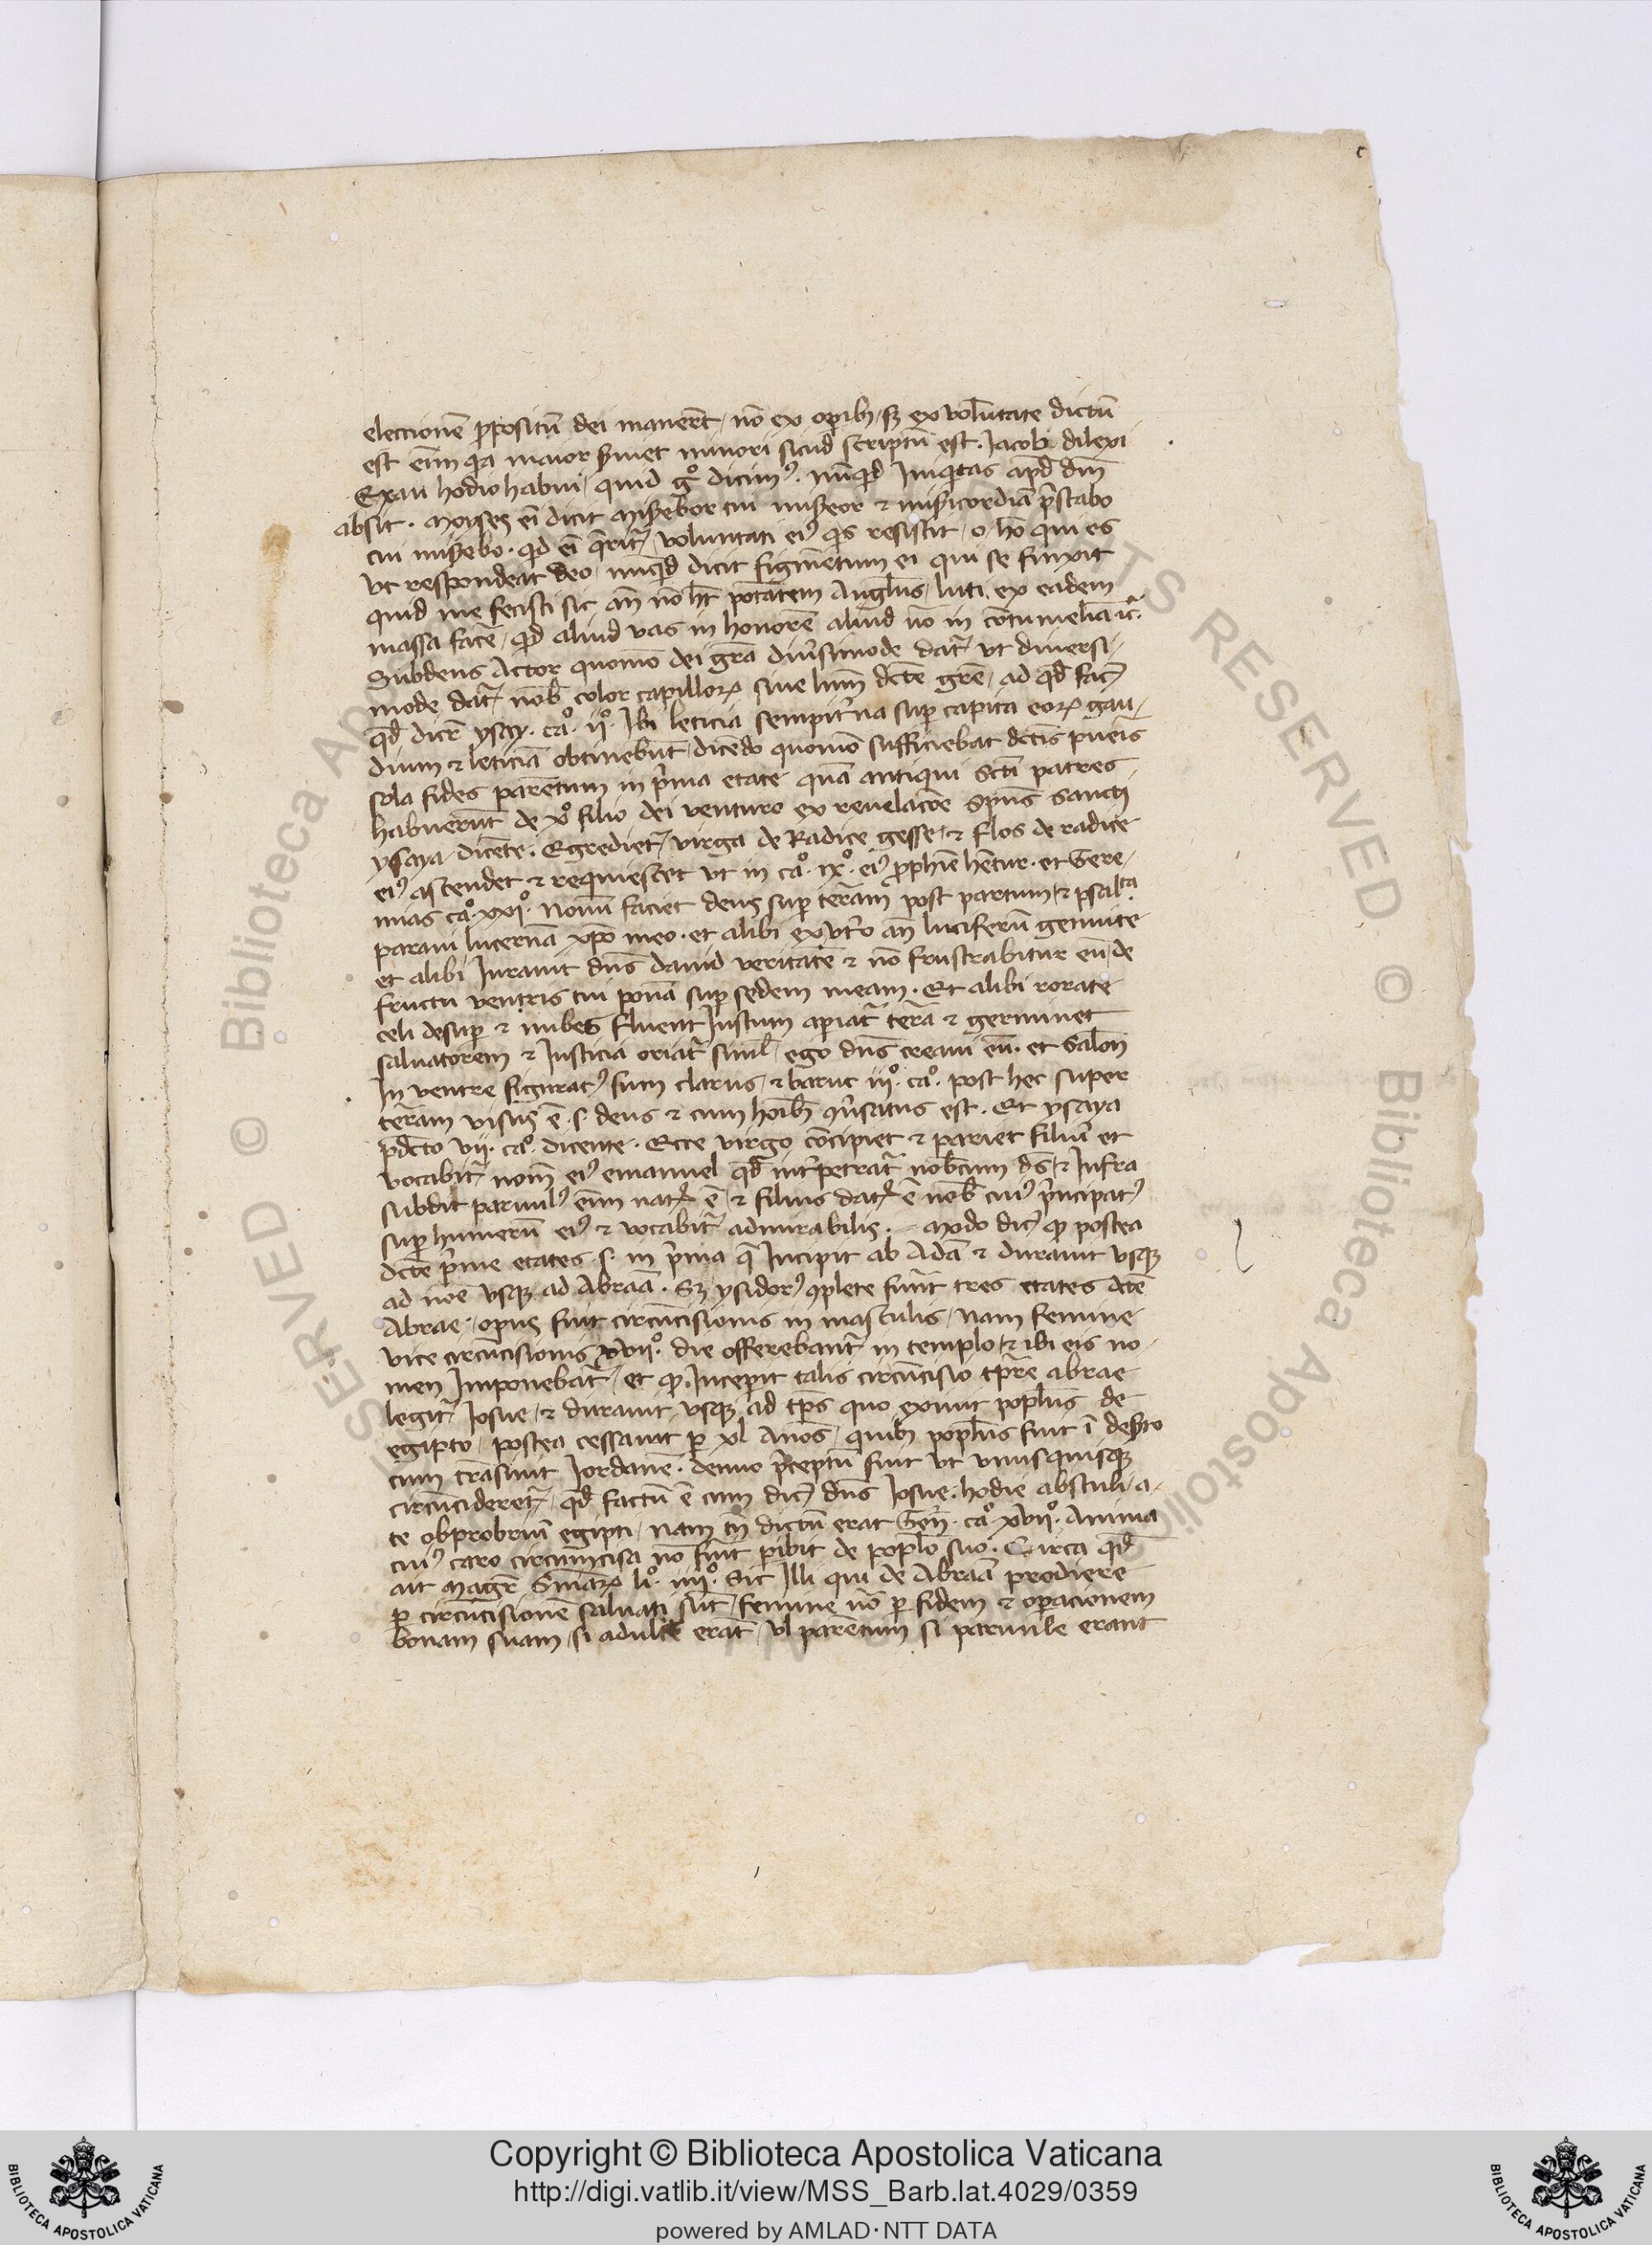 eleccionē p̱positū dei maneret / nō ex opib₉ / sꝫ ex volūtate dictū
est eīm qa maior s̄uiet minori sicud scriptū est . Iacob dilexi
Exau hodio habui / quid gͦ dicim⁹ . nūqd Iniqtas apd dm̄
absit . moyses eī dicit misebor cui miseor ⁊ misicordiā p̄stabo
cui misebo . qd eī q̄rit᷑ / voluntati ei⁹ qs resistit / o hō qui es
vt respondeat deo / nūqd dicit figmētum ei qui se finxit
quid me fecisti sic an̄ nō ht̄ potātem luti ex eadem
massa facē / qd aliud vas in honorē aliud ūo in cōtumeliā
Subdens Actor quomō dei gr̄a diūsimode dat᷑ vt diuersi
mode dat᷑ nob̄ color capilloꝝ siue lum̄ dc̄te gr̄e / ad qd fac̄
qd dicit᷑ ysay . caͦ . ijͦ . Ibi leticia sempit̄na sup capita eoꝝ gau
dium ⁊ leticiā obtinebūt / dicēdo quomō sufficiebat dc̄tis pueris
sola fides parētum in p̄ma etate quā antiqui sc̄ti patres
habuerūt de xͦ filio dei venturo ex reuelacōe Sp̄us sancti
ysaya dicēte . Egrediet᷑ virga de Radice gesse / ⁊ flos de radice
ei⁹ ascendet ⁊ requiescet vt in caͦ . ixͦ . ei⁹ p̱phīe hētur . et Gere
mias caͦ . xxiͦ . nouū faciet deus sup terram post partum / ⁊ psalta
paraui lucernā xp̄o meo . et alibi ex vt̄o an̄ luciferū genuite
et alibi Iurauit dn̄s dauid veritatē ⁊ nō frustrabitur eū / de
fructu ventris tui ponā sup sedem meam . Et alibi rorate
celi desup ⁊ nubes fluent Iustum apiat᷑ terra ⁊ germinet
saluatorem ⁊ Iusticia oriat᷑ siml̄ ego dn̄s creaui eū . et Salōn
In ventre figurat⁹ sum clarus / ⁊ baruc iijͦ . caͦ . post hec super
terram visus ē . s . deus ⁊ cum hoīb₉ ꝯūsatus est . Et ysaya
p̄dc̄to vij . caͦ . dicente . Ecce virgo cōcipiet ⁊ pariet filiū et
vocabit᷑ nom̄ ei⁹ emanuel qd int̄petrat᷑ nob̄cum ds̄ / ⁊ Infra
subdit paruul⁹ eīm nat⁹ ē / ⁊ filius dat⁹ ē nob̄ cui⁹ p̄ncipat⁹
sup humerū ei⁹ ⁊ vocabit᷑ admirabilis . – modo dic̄ qꝫ postea
dc̄te p̄me etates . s . in p̄ma q̄ Incipit ab Adā ⁊ durauit vsqꝫ
ad noe vsqꝫ ad Abraā . Sꝫ ysidor⁹ ꝯplete fūnt tres etates dc̄te
Abrae / opus fuit circūcisionis in masculis / nam femine
vice circūcisionis xviiͦ . die offerebant᷑ in templo / ⁊ ibi eis no
men Imponebat᷑ / et qꝫ Incepit talis circūcisio tp̄re abrae
legit᷑ Iosue / ⁊ durauit vsqꝫ ad tp̄s quo exiuit popl̄us de
egipto / postea cessauit p xl Anos / quib₉ popl̄us fuit ī deserto
cum trāsiuit Iordanē . denuo p̄ceptū fuit vt vnusquisqꝫ
circūcideret᷑ / qd factū ē cum dic̄ dn̄s Iosue . hodie abstuli a
te obprobriū egipti / nam tn̄ dictū erat Gen̄ . caͦ xviiͦ . Anima
cui⁹ caro circūmcisa nō fūit pibit de popl̄o suo . Circa qd
ait magr̄ Sniāꝝ liͦ . iiijͦ . Sic Illi qui de Abraā prodiere
p circūcisionē saluati sūt / femine ūo p fidem ⁊ opacionem
bonam suam / si adulte erāt / vl parētum si paruule erant